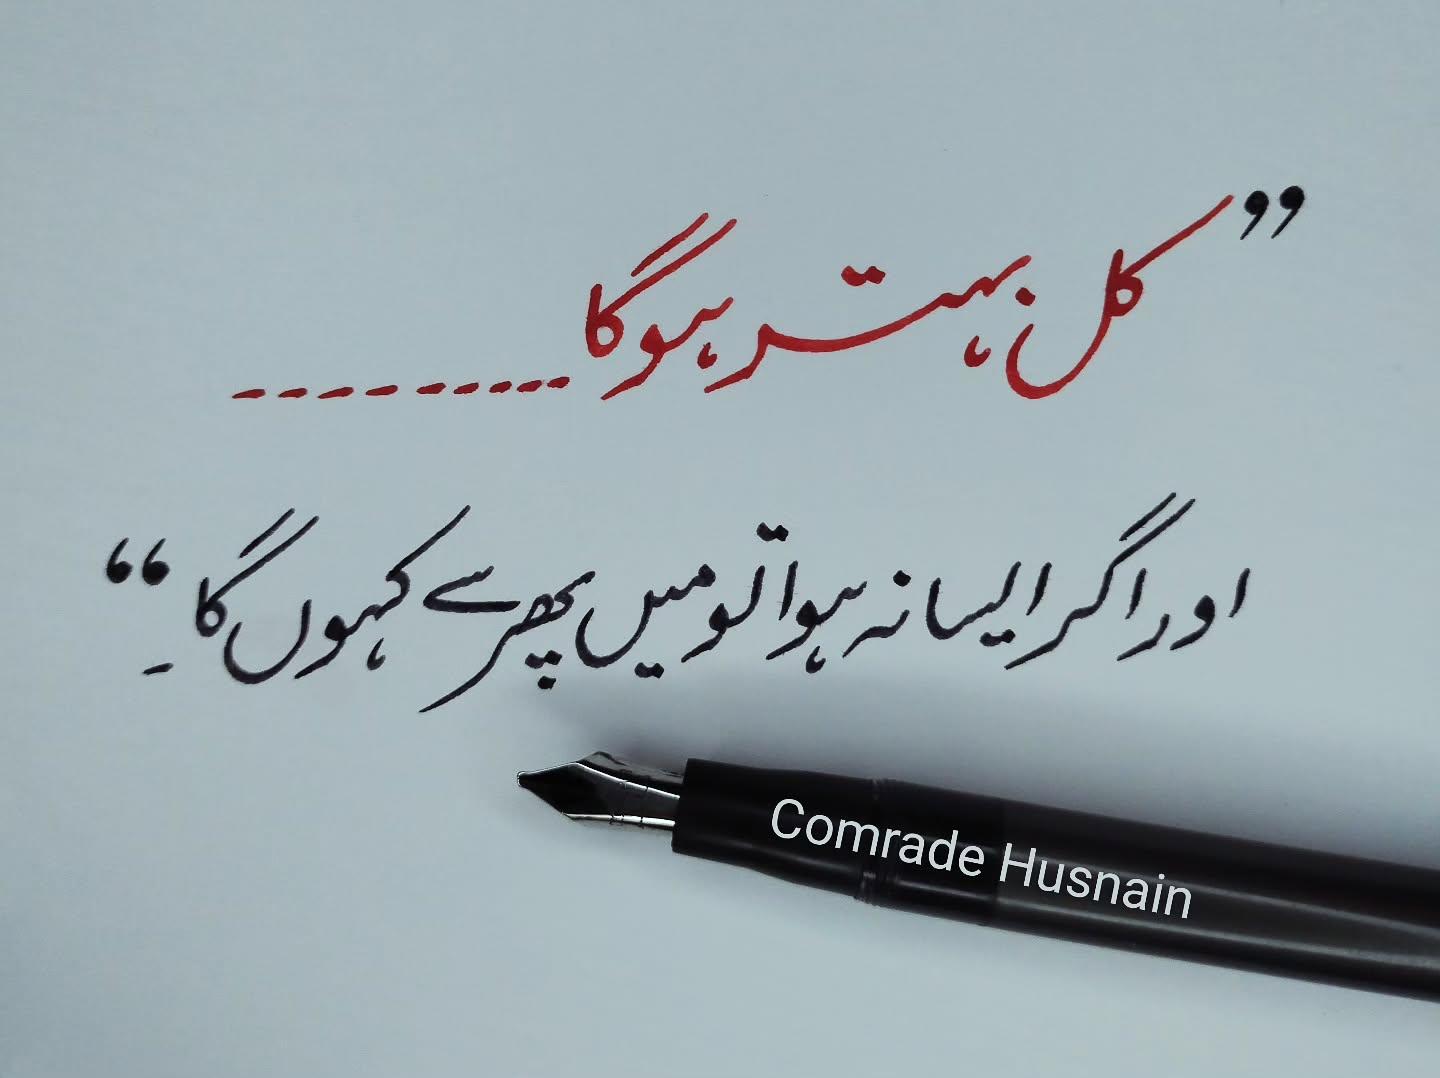 ”کل بہتر ہوگا۔۔۔۔۔۔۔۔۔
اور اگر ایسا نہ ہوا تو میں پھر سے کہوں گا۔“
Comrade Husnain